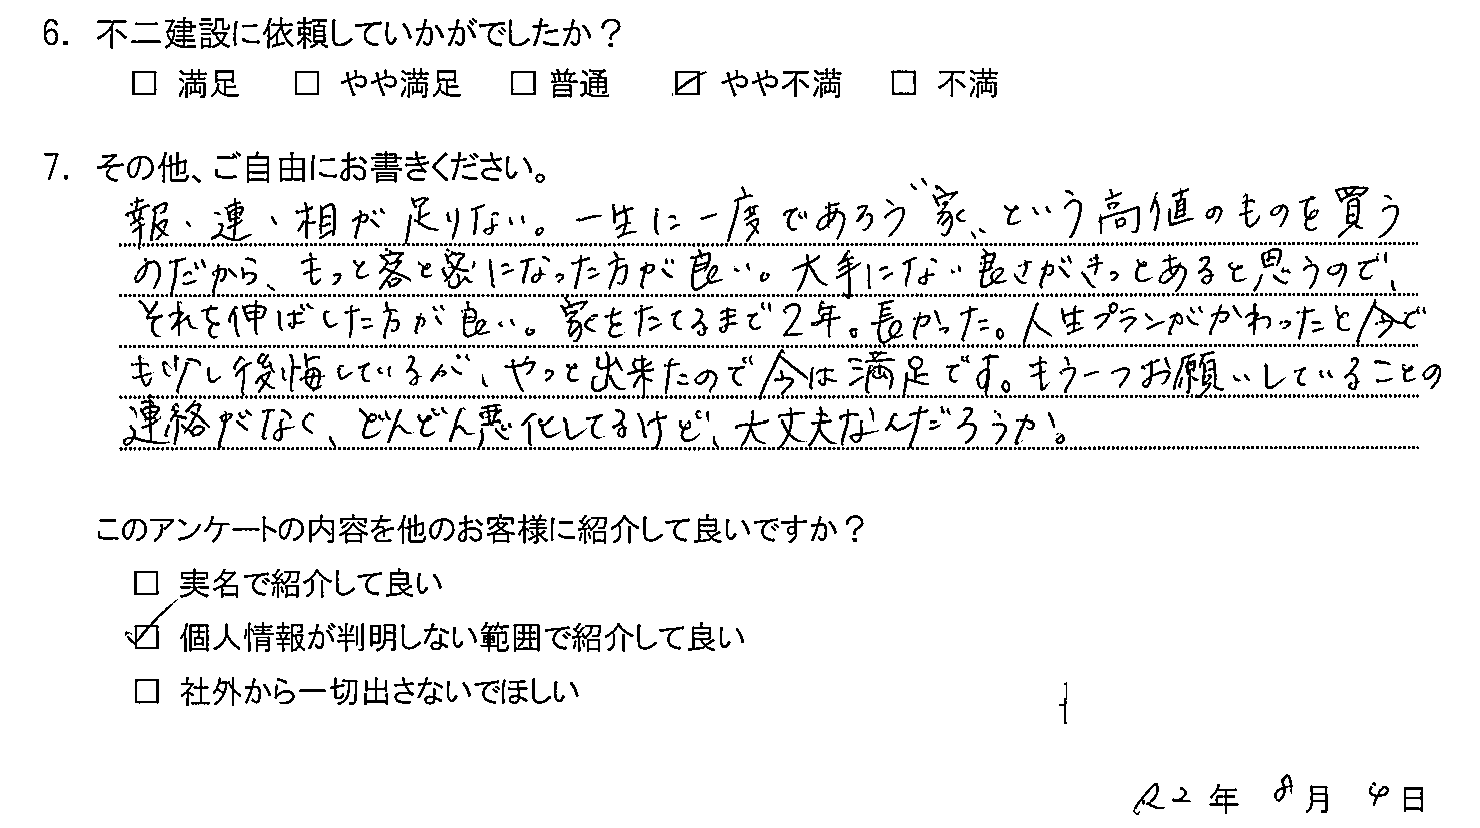 6. 不二建設に依頼していかがでしたか？
□ 満足 □ やや満足 □ 普通 ☑ やや不満 □ 不満
7. その他、ご自由にお書きください。
報・連・相が足りない。一生に一度であろう〝家〟という高値のものを買う
のだから、もっと客と密になった方が良い。大手にない良さがきっとあると思うので、
それを伸ばした方が良い。家をたてるまで2年。長かった。人生プランがかわったと今で
も少し後悔しているが、やっと出来たので今は満足です。もう一つお願いしていることの
連絡がなく、どんどん悪化してるけど、大丈夫なんだろうか。
このアンケートの内容を他のお客様に紹介して良いですか？
□ 実名で紹介して良い
☑ 個人情報が判明しない範囲で紹介して良い
□ 社外から一切出さないでほしい
R2年 8月 4日